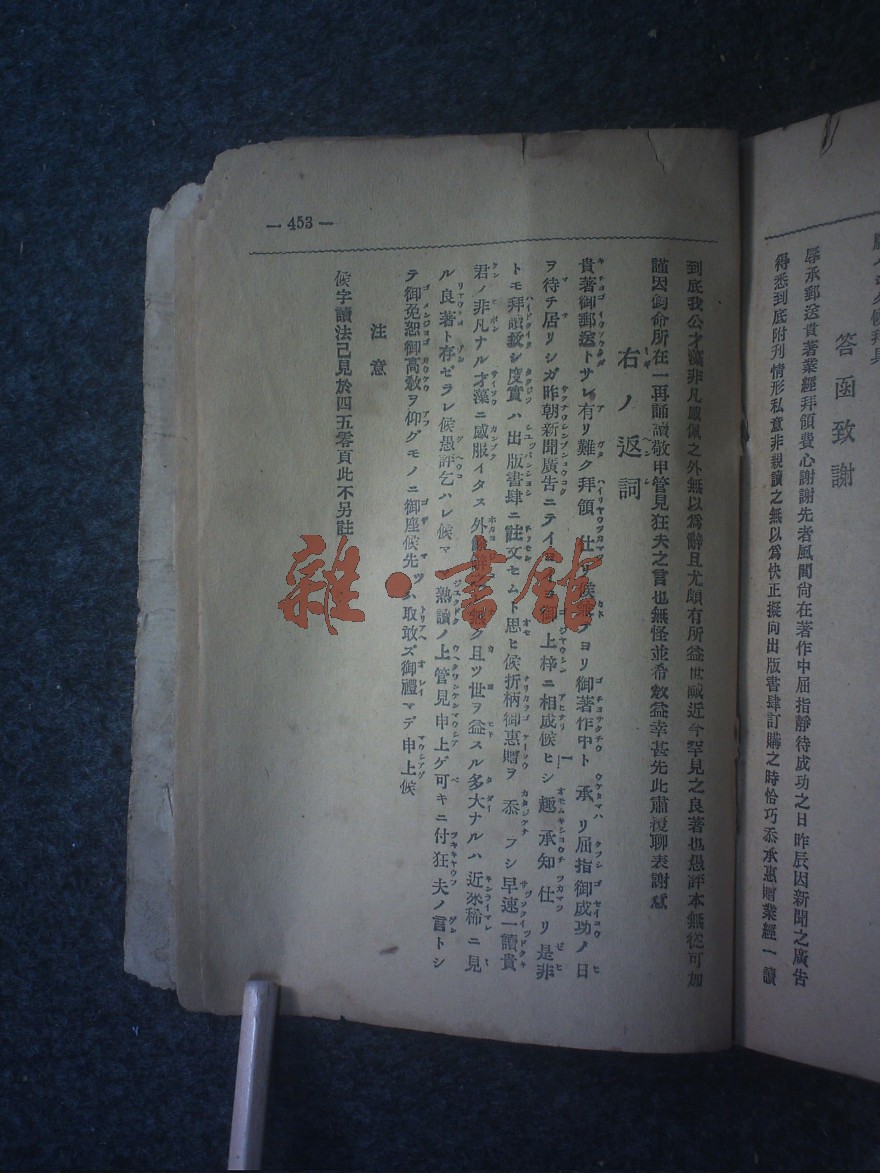 答函致謝
辱承郵送貴著業經拜領費心謝謝先者風聞尙在著作中屈指靜待成功之日昨辰因新聞之廣吿
得悉到底附刊情形私意非親讀之無以爲快正擬向出版書肆訂購之時恰巧忝承惠贈業經一讀
— 453 —
到底我公才藻非凡感佩之外無以爲辭且尤頗有所益世誠近今罕見之良著也愚評本無從可加
謹因鈞命所在一再誦讀敬甲管見狂夫之言也無怪並希敎益幸甚先此肅復聊表謝意
右ノ返詞
貴著御郵送トサレ有リ難ク拜領仕リ候兼テヨリ御著作中ト承リ屈指御成功ノ日
ヲ待チ居リシガ昨朝新聞廣吿ニテイヨイヨ御上梓ニ相成候ヒシ趣承知仕リ是非
トモ拜讀致シ度實ハ出版書肆ニ註文セムト思ヒ候折柄御惠贈ヲ忝フシ早速一讀貴
君ノ非凡ナル才藻ニ感服イタス外ク且ツ世ヲ益スル多大ナルハ近來稀ニ見
ル良著ト存ゼラレ候愚評乞ハレ候マ熟讀ノ上管見申上ゲ可キニ付狂夫ノ言トシ
テ御免恕御高敎ヲ仰グモノニ御座候先ツハ取敢ズ御禮マデ申上候
注意
候字讀法已見於四五零頁此不另註
雜·書館